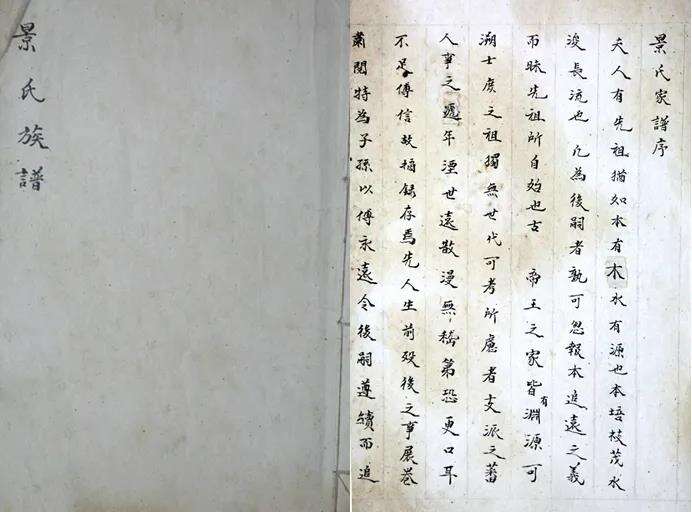 景氏族譜
景氏家譜序
夫人有先祖猶如本有木水有源也本培枝茂水
浚長流也凡為後嗣者孰可忽報本追遠之義
而昧先祖所自始也古 帝王之家皆有淵源可
溯士庶之祖獨無世代可考所慮者支派之蕃
人事之遞年湮世遠散漫無稽第恐更口耳
不足傳信故摘錄存焉先人生前殁後之事展卷
肅閱特為子孫以傳永遠令後嗣遵續而追